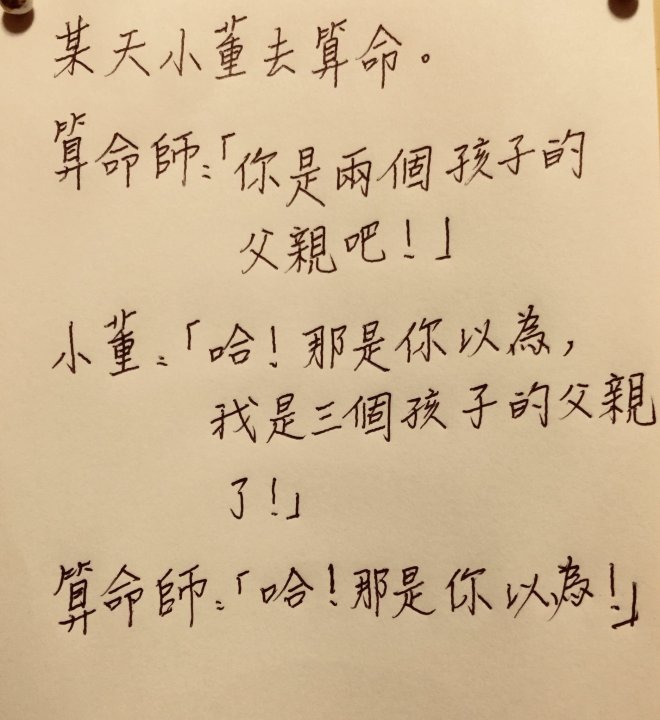 某天小董去算命。
算命師：「你是兩個孩子的
父親吧！」
小董：「哈！那是你以為，
我是三個孩子的父親
了！」
算命師：「哈！那是你以為！」